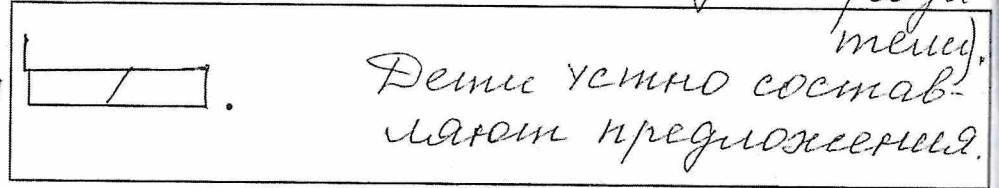 тели).
Дети устно состав-
ляют предложения.